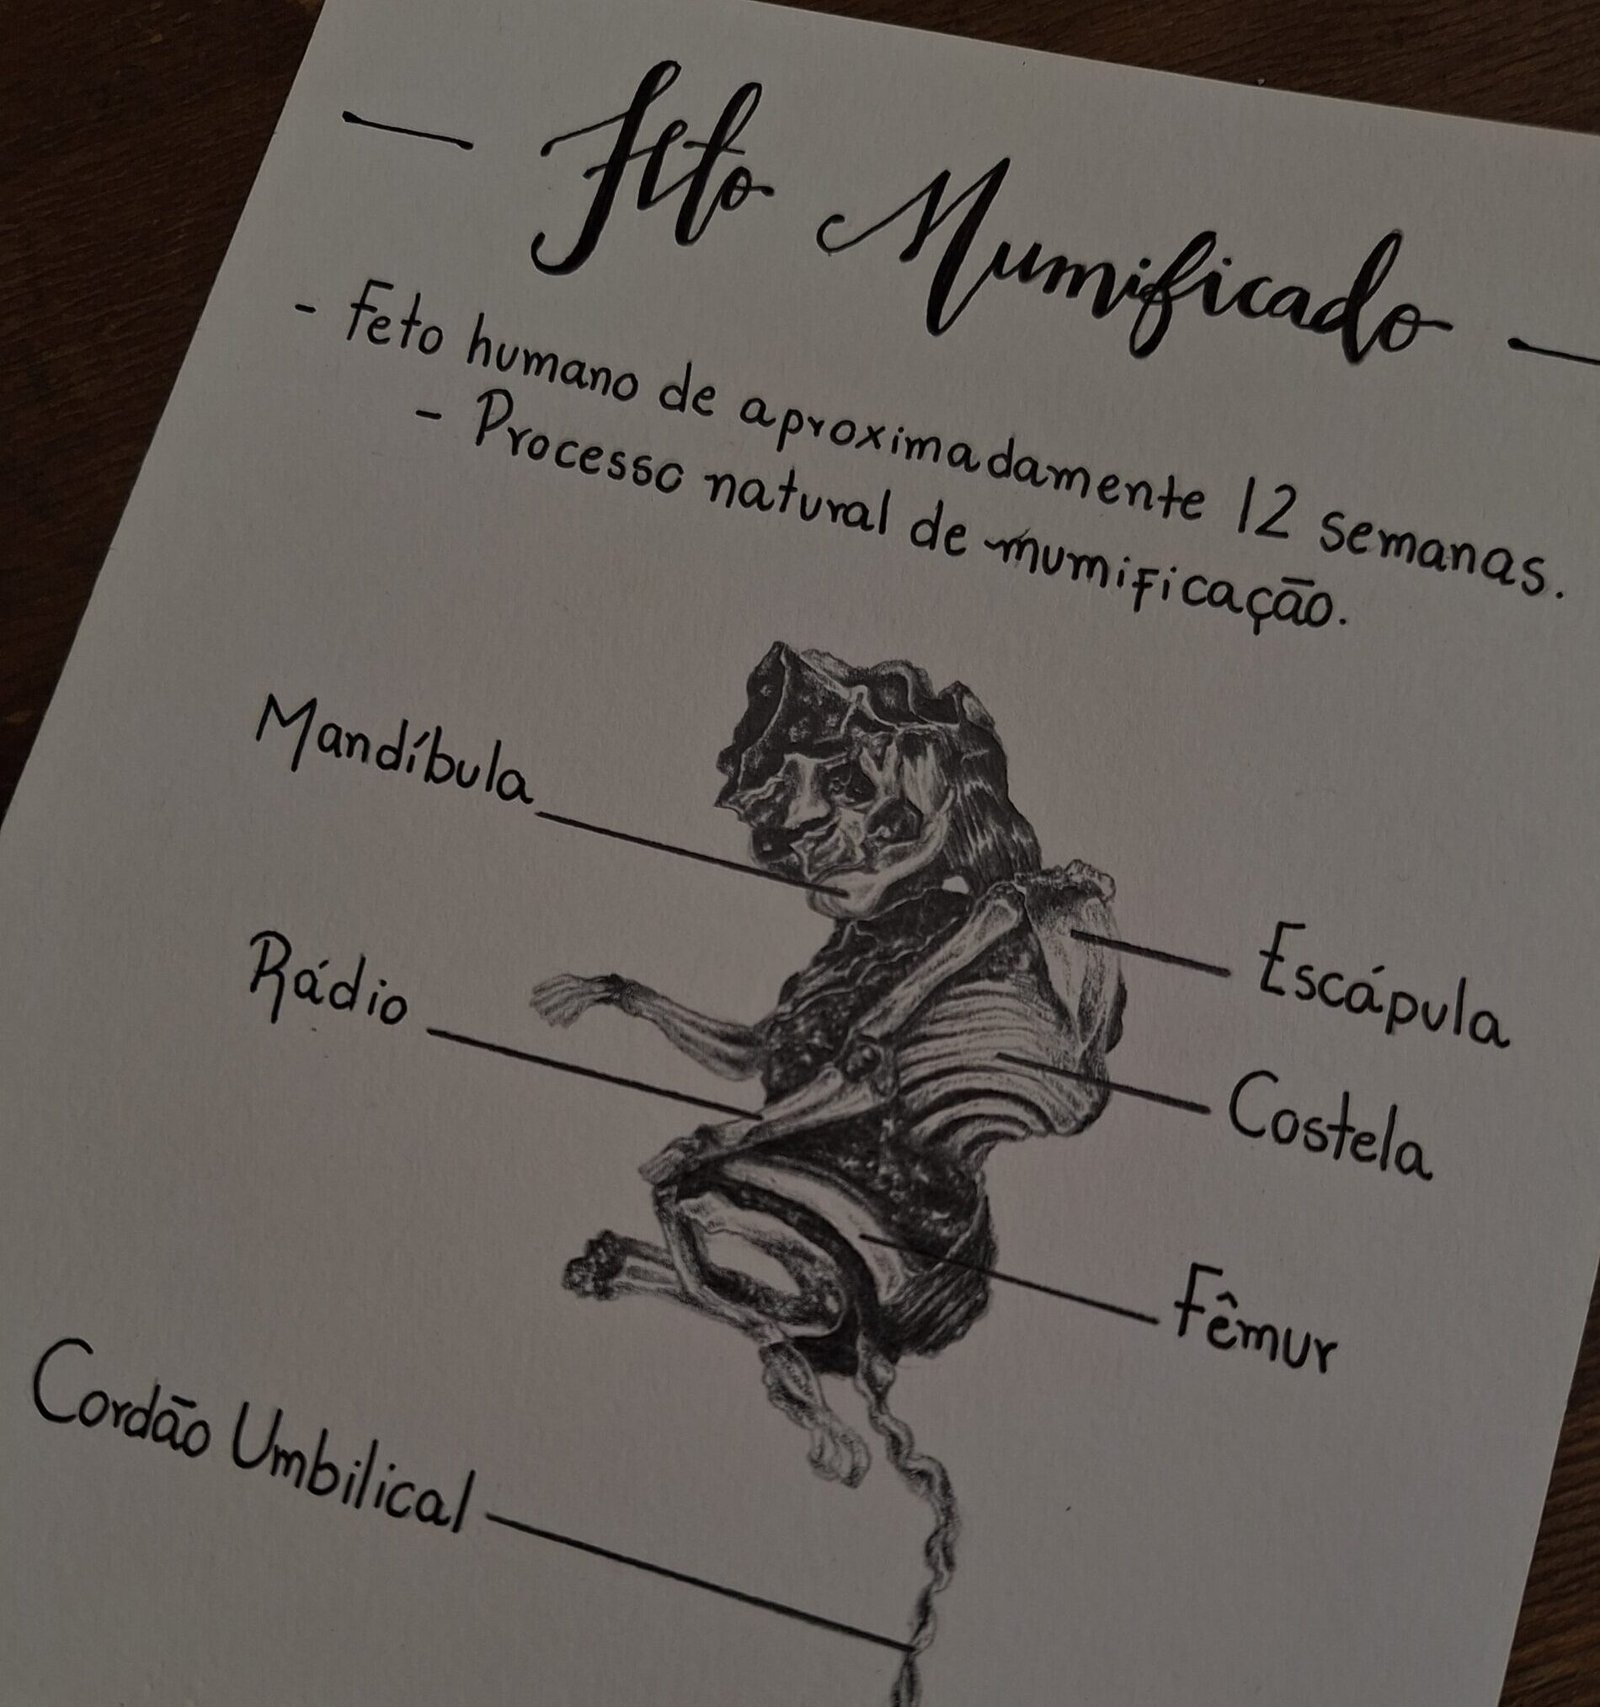 Feto Mumificado
- Feto humano de aproximadamente 12 semanas.
- Processo natural de mumificação.
Mandíbula
Escápula
Rádio
Costela
Fêmur
Cordão Umbilical